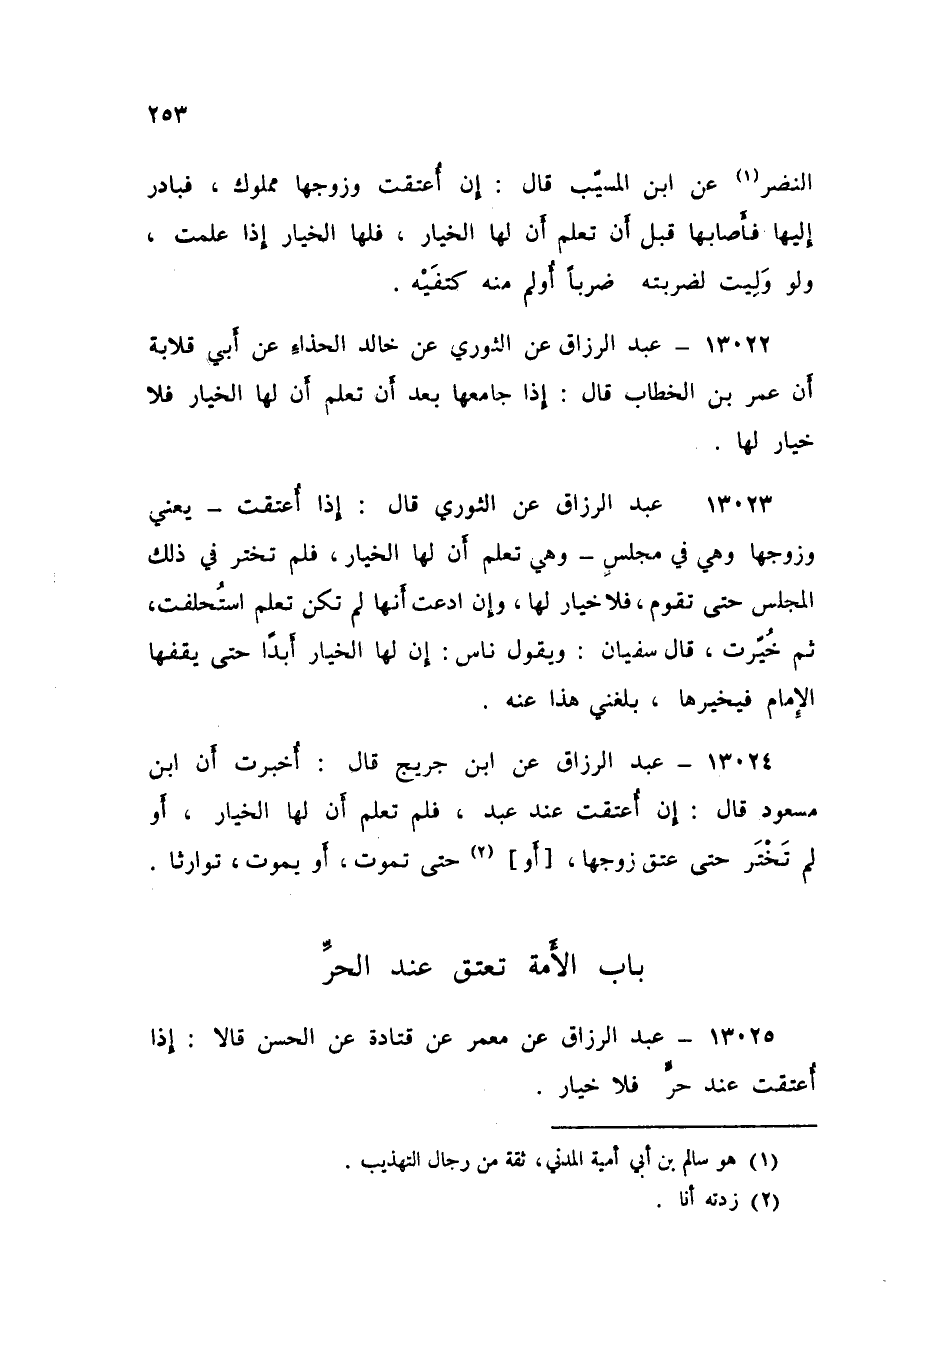 ٢٥٣
النضر(١) عن ابن المسيّب قال : إن أُعتقت وزوجها مملوك ، فبادر
إليها فأَصابها قبل أَن تعلم أَن لها الخيار ، فلها الخيار إذا علمت ،
ولو وَلِيت لضربته ضرباً أُولم منه كتفَيْه .
١٣٠٢٢ – عبد الرزاق عن الثوري عن خالد الحذاءِ عن أَبي قلابة
أَن عمر بن الخطاب قال : إذا جامعها بعد أَن تعلم أَن لها الخيار فلا
خيار لها .
١٣٠٢٣ عبد الرزاق عن الثوري قال : إذا أُعتقت – يعني
وزوجها وهي في مجلسٍ – وهي تعلم أَن لها الخيار ، فلم تختر في ذلك
المجلس حتى تقوم ، فلا خيار لها ، وإن ادعت أَنها لم تكن تعلم استُحلفت،
ثم خُيّرت ، قال سفيان : ويقول ناس : إن لها الخيار أَبدًا حتى يقفها
الإمام فيخيرها ، بلغني هذا عنه .
١٣٠٢٤ – عبد الرزاق عن ابن جريج قال : أُخبرت أَن ابن
مسعود قال : إن أُعتقت عند عبد ، فلم تعلم أَن لها الخيار ، أَو
لم تَخْتَر حتى عتق زوجها ، [أَو] (٢) حتى تموت ، أَو يموت ، توارثا .
باب الأَمة تعتق عند الحرِّ
١٣٠٢٥ – عبد الرزاق عن معمر عن قتادة عن الحسن قالا : إذا
أُعتقت عند حرٍّ فلا خيار .
(١) هو سالم بن أبي أمية المدني، ثقة من رجال التهذيب .
(٢) زدته أنا .